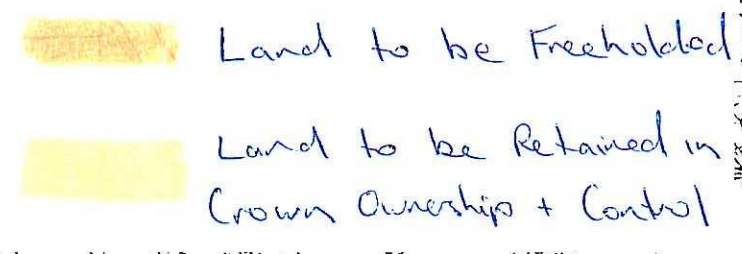 Land to be Freeholded
Land to be Retained in
Crown Ownership + Control